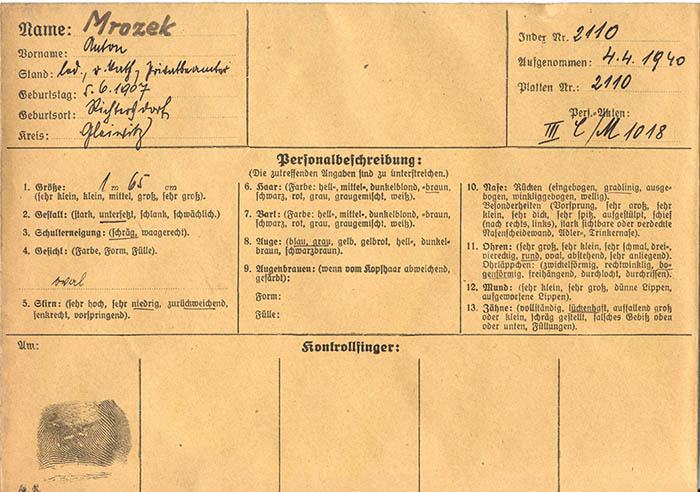 Name: Mrozek
Vorname: Anton
Stand: led., r. kath., Privatbeamter
Geburtstag: 5.6.1907
Geburtsort: Richtersdorf
Kreis: Gleiwitz
Index Nr. 2110
Aufgenommen: 4.4.1940
Platten Nr.: 2110
Pers.-Akten:
III C/M 1018
Personalbeschreibung:
(Die zutreffenden Angaben sind zu unterstreichen.)
1. Größe: 1 m 65 cm
(sehr klein, klein, mittel, groß, sehr groß).
2. Gestalt: (stark, untersetzt, schlank, schwächlich.)
3. Schulterneigung: (schräg, waagerecht).
4. Gesicht: (Farbe, Form, Fülle).
oval
5. Stirn: (sehr hoch, sehr niedrig, zurückweichend,
senkrecht, vorspringend).
6. Haar: (Farbe: hell-, mittel-, dunkelblond, -braun,
schwarz, rot, grau, graugemischt, weiß).
7. Bart: (Farbe: hell-, mittel-, dunkelblond, -braun,
schwarz, rot, grau, graugemischt, weiß).
8. Auge: (blau, grau, gelb, gelbrot, hell-, dunkel-
braun, schwarzbraun).
9. Augenbrauen: (wenn vom Kopfhaar abweichend,
gefärbt):
Form:
Fülle:
10. Nase: Rücken (eingebogen, gradlinig, ausge-
bogen, winkliggebogen, wellig).
Besonderheiten (Vorsprung, sehr groß, sehr
klein, sehr dick, sehr spitz, aufgestülpt, schief
(nach rechts, links), stark sichtbare oder verdeckte
Nasenscheidewand, Adler-, Trinkernase).
11. Ohren: (sehr groß, sehr klein, sehr schmal, drei-,
viereckig, rund, oval, abstehend, sehr anliegend).
Ohrläppchen: (zwickelförmig, rechtwinklig, bo-
genförmig, freihängend, durchlocht, durchrissen).
12. Mund: (sehr klein, sehr groß, dünne Lippen,
aufgeworfene Lippen).
13. Zähne: (vollständig, lückenhaft, auffallend groß
oder klein, schräg gestellt, falsches Gebiß oben
oder unten, Füllungen).
Am:
Kontrollfinger: